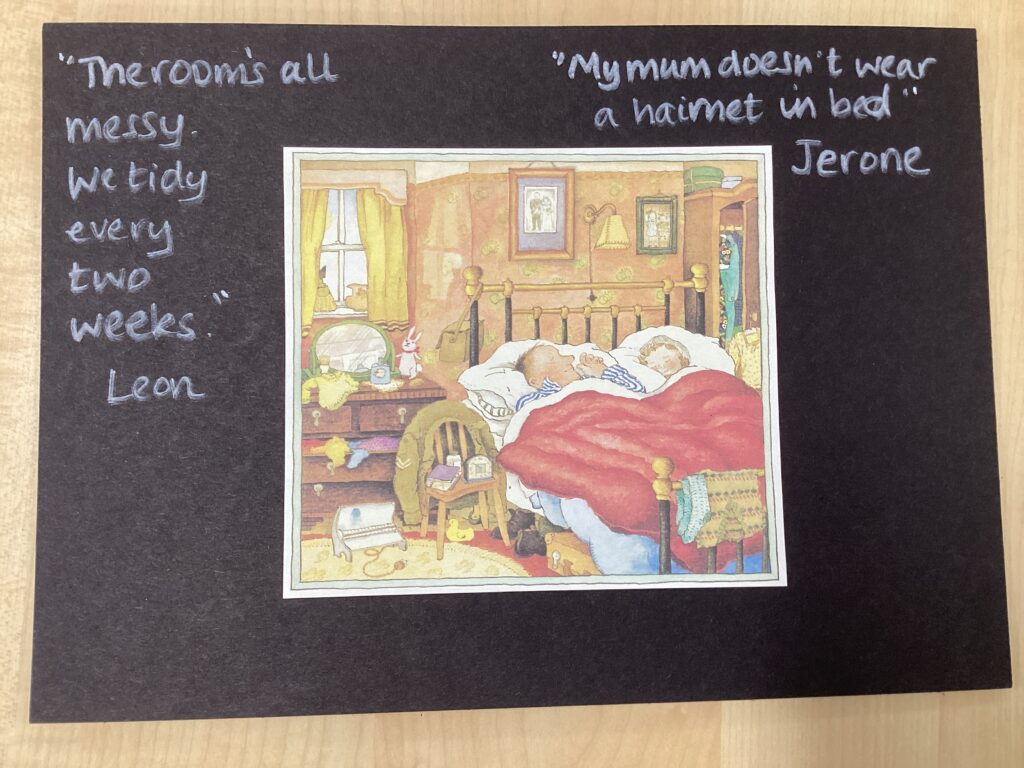 "The room's all
messy.
We tidy
every
two
weeks."
Leon
"My mum doesn't wear
a hairnet in bed"
Jerone